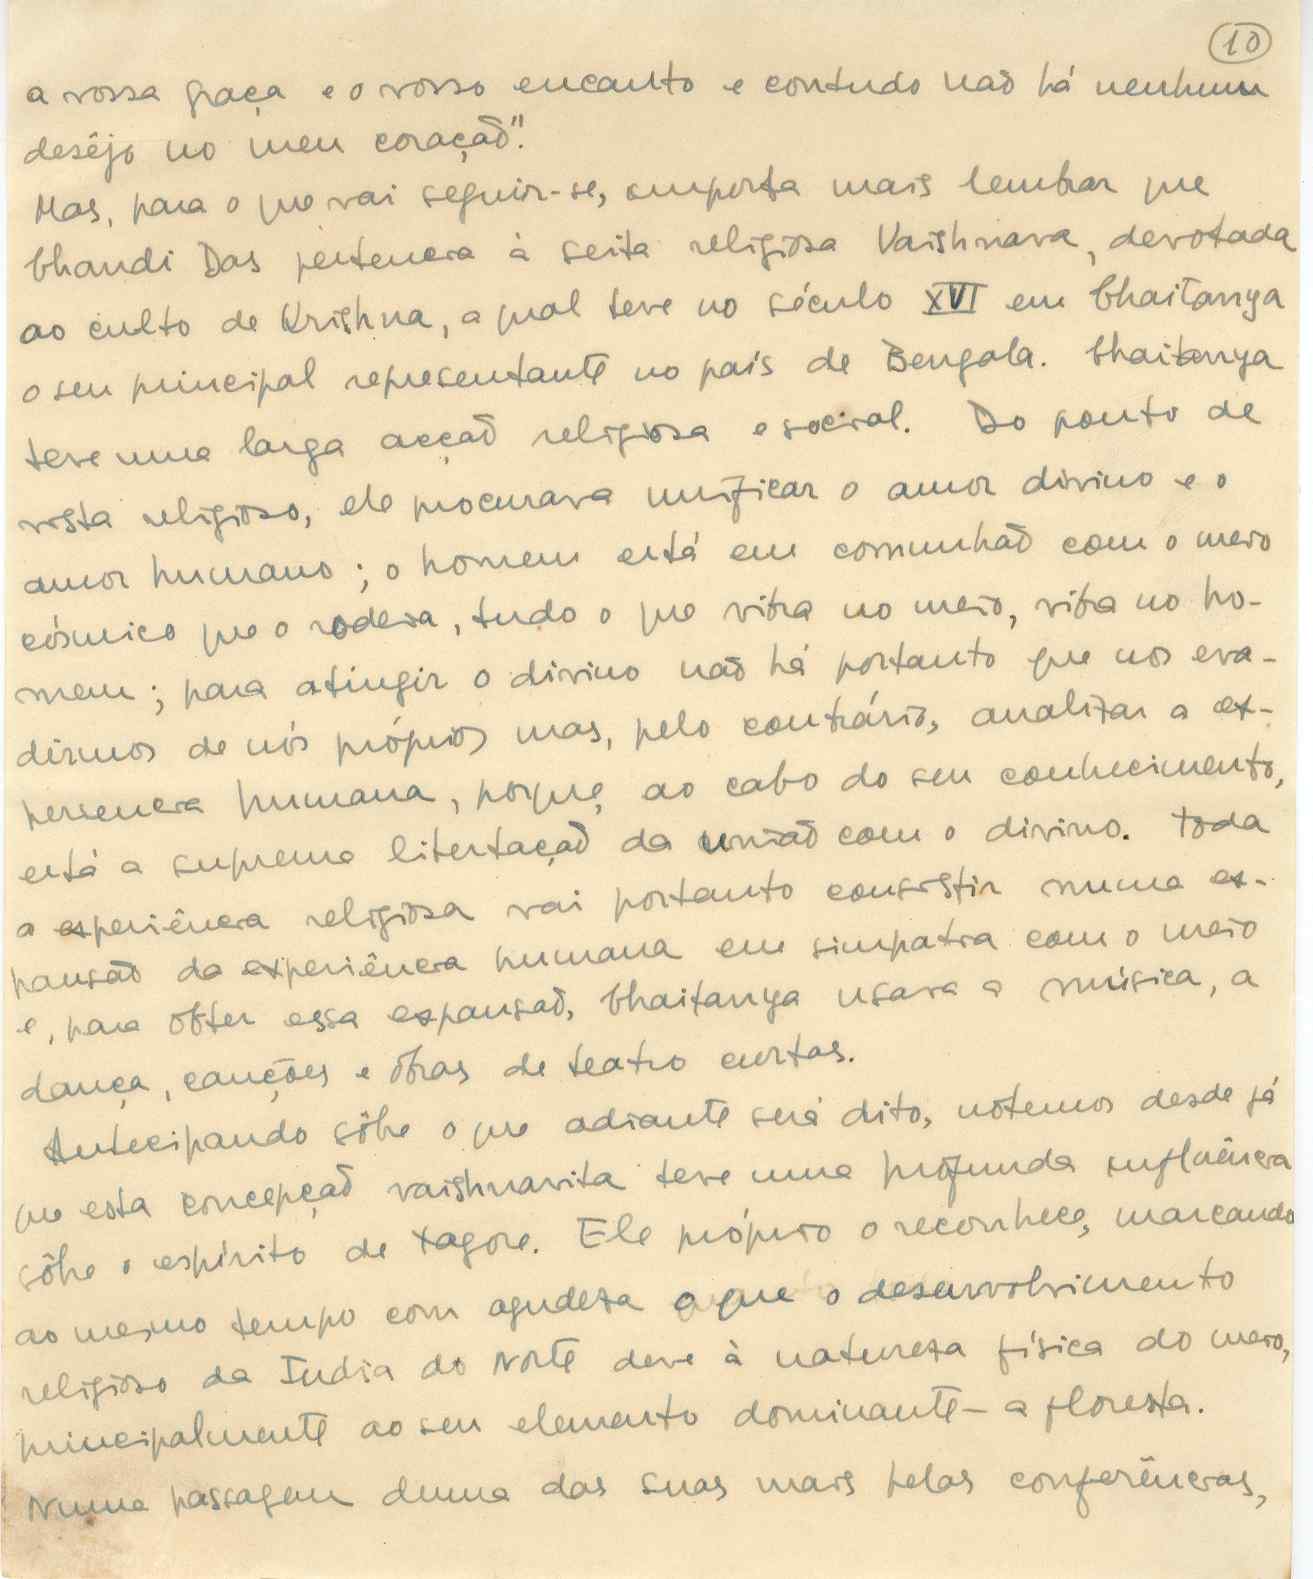 10
a vossa graça e o vosso encanto e contudo não há nenhum
desêjo no meu coração".
Mas, para o que vai seguir-se, importa mais lembrar que
Chandi Das pertencia à seita religiosa Vaishnava, devotada
ao culto de Krishna, a qual teve no século XVI em Chaitanya
o seu principal representante no país de Bengala. Chaitanya
teve uma larga acção religiosa e social. Do ponto de
vista religioso, ele procurava unificar o amor divino e o
amor humano; o homem está em comunhão com o meio
cósmico que o rodeia, tudo o que vibra no meio, vibra no ho-
mem; para atingir o divino não há portanto que nos eva-
dirmos de nós próprios mas, pelo contrário, analizar a ex-
periencia humana, porque, ao cabo do seu conhecimento,
está a suprema libertação da união com o divino. Toda
a experiência religiosa vai portanto consistir numa ex-
pansão da experiência humana em simpatia com o meio
e, para obter essa expansão, Chaitanya usava a música, a
dança, canções e obras de teatro curtas.
Antecipando sôbre o que adiante será dito, notemos desde já
que esta concepção vaishnavita teve uma profunda influência
sôbre o espírito de Tagore. Ele próprio o reconhece, marcando
ao mesmo tempo com agudeza o que o desenvolvimento
religioso da India do Norte deve à natureza física do meio,
principalmente ao seu elemento dominante – a floresta.
Numa passagem duma das suas mais belas conferências,